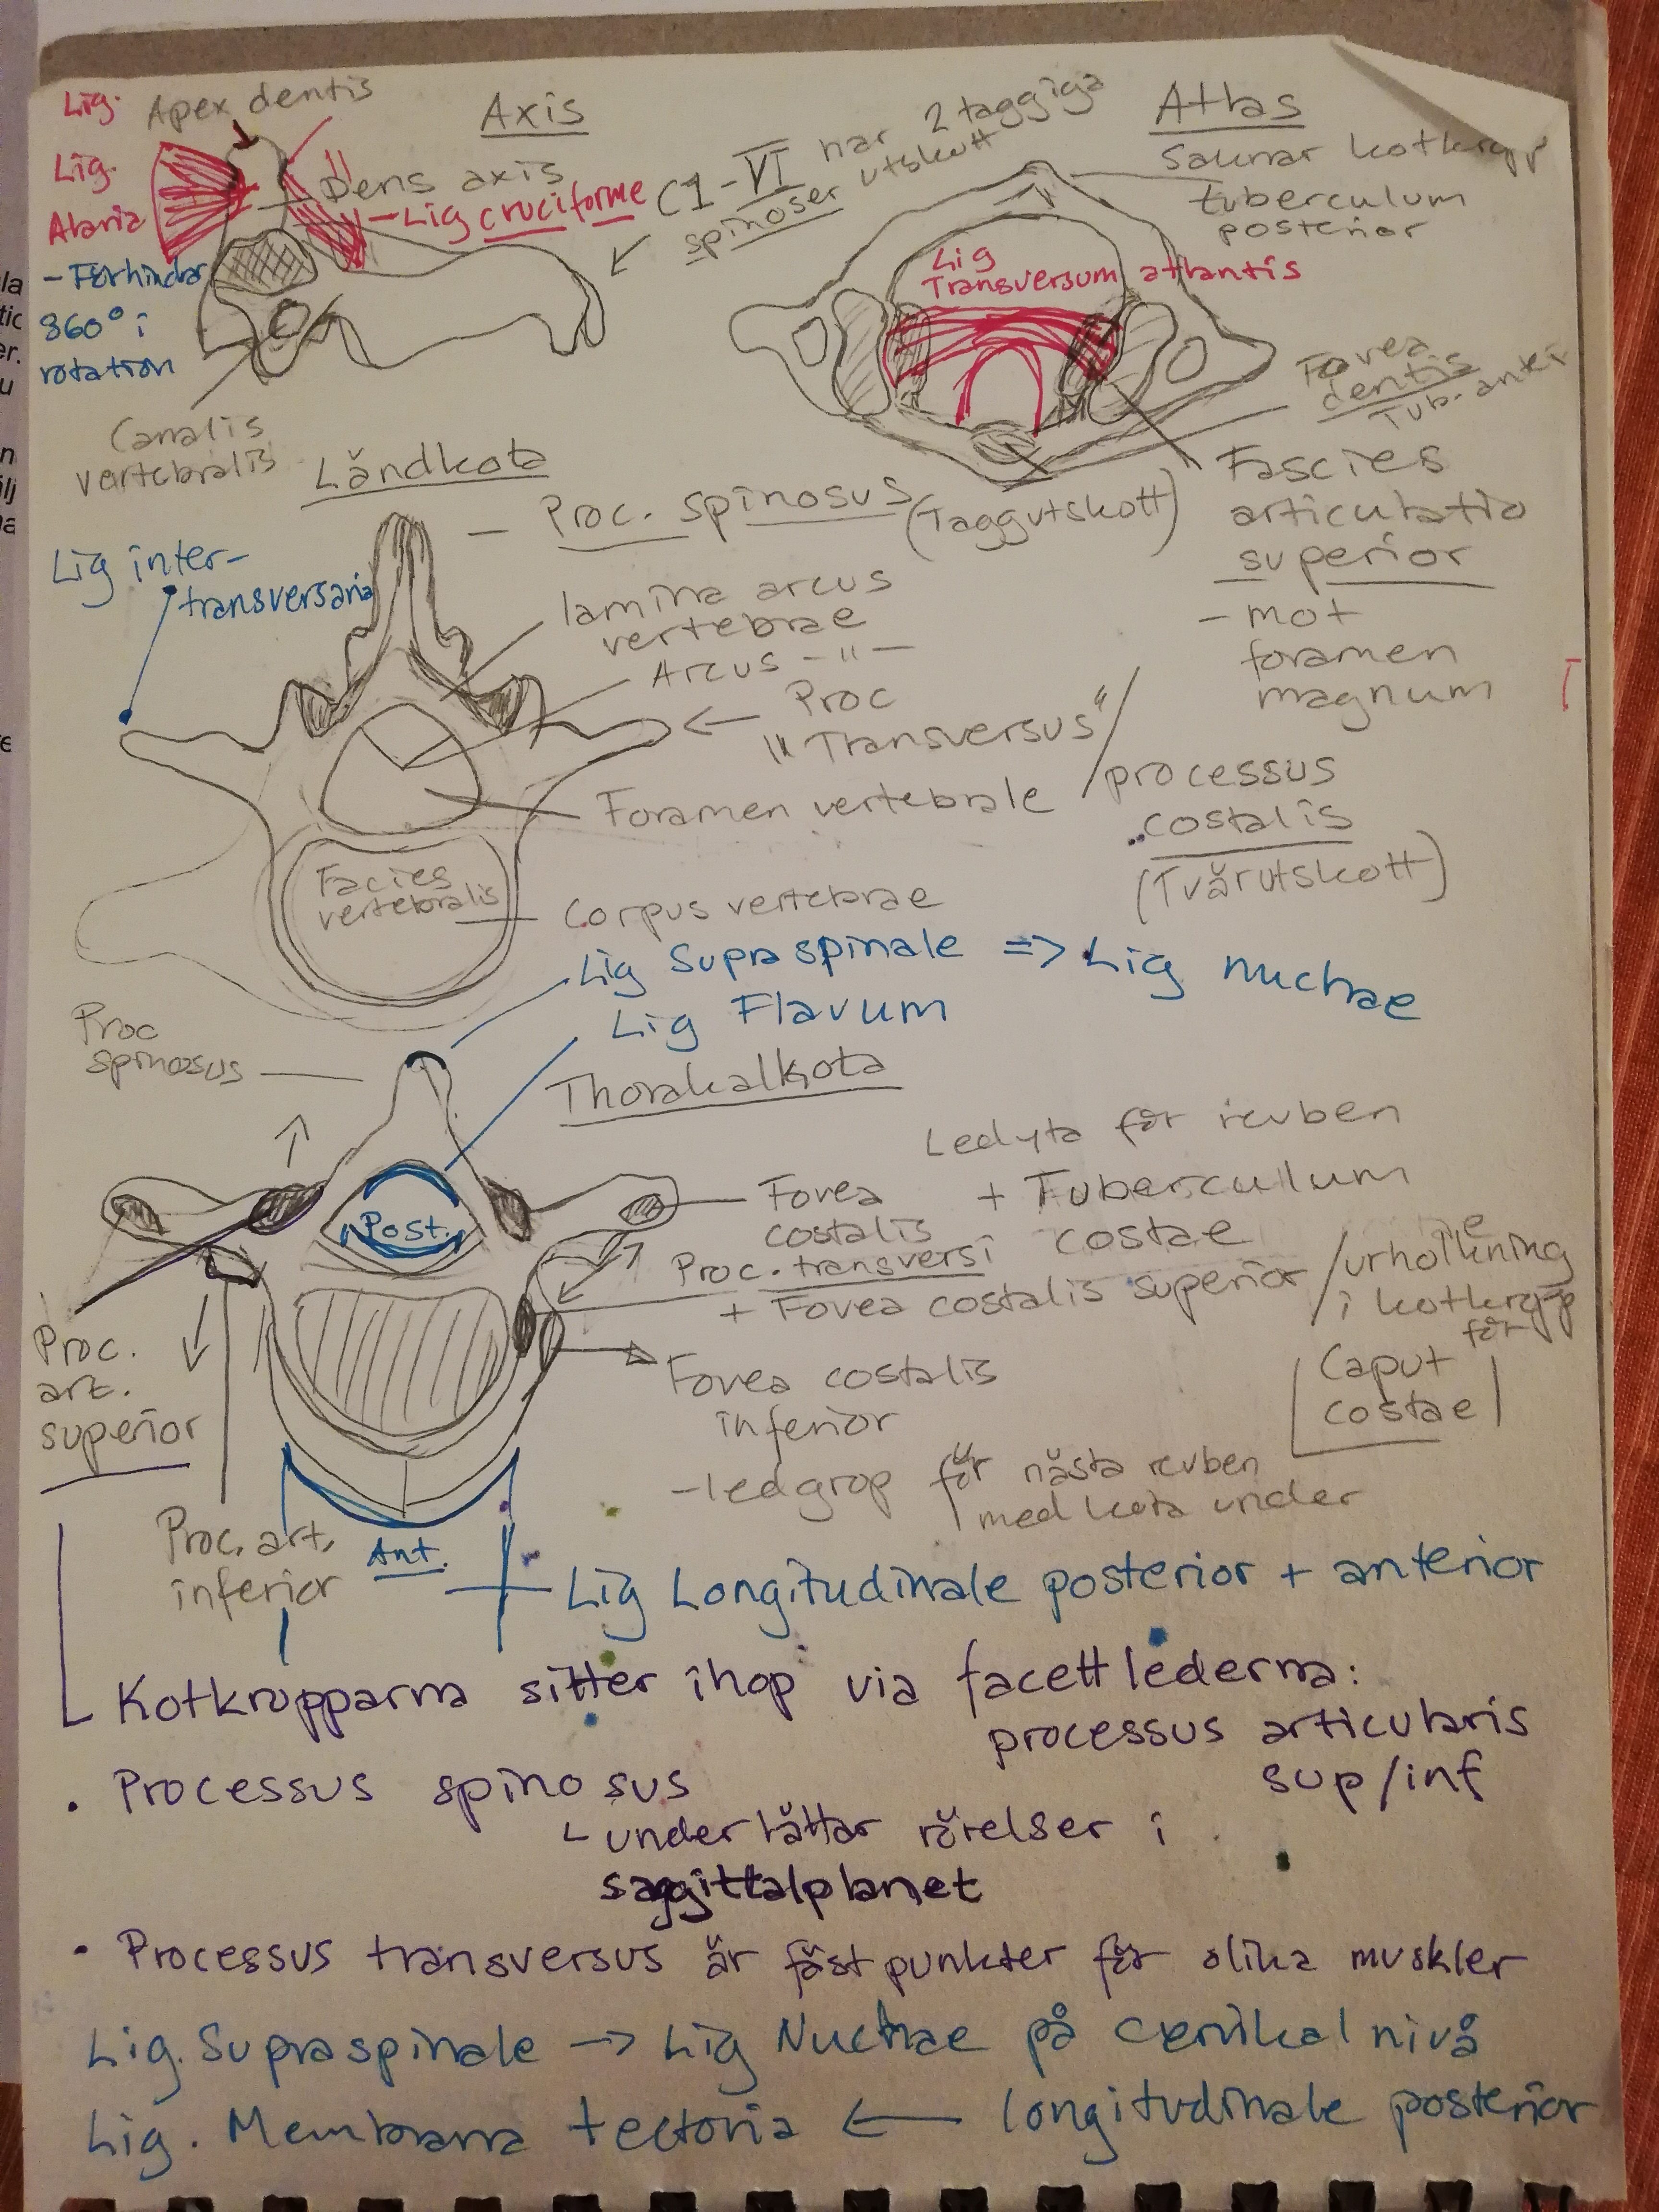 Lig.
Apex dentis
Axis
Lig.
Alaria
- Förhindrar
360° i
rotation
Dens axis
- Lig cruciforme
C1-VI har 2 taggiga
spinoser utskott
Canalis
vertebralis
Atlas
Saknar kotkropp
tuberculum
posterior
Lig
Transversum atlantis
Fovea
dentis
Tub. anter
Fascies
articulatio
superior
- mot
foramen
magnum
Ländkota
- Proc. spinosus (Taggutskott)
Lig inter-
transversaria
lamina arcus
vertebrae
Arcus - " -
Proc
"Transversus" /
processus
costalis
(Tvärutskott)
Foramen vertebrale
Facies
vertebralis
Corpus vertebrae
Lig Supraspinale => Lig nuchae
Lig Flavum
Proc
spinosus
Thorakalkota
Ledyta för revben
Fovea + Tuberculum
costalis costae
Proc. transversi
+ Fovea costalis superior / urholkning
i kotkropp
för
Caput
costae
Post.
Proc.
art.
superior
Fovea costalis
inferior
- ledgrop för nästa revben
med kota under
Proc. art.
inferior
Ant.
Lig Longitudinale posterior + anterior
Kotkropparna sitter ihop via facettlederna:
processus articularis
sup/inf
• Processus spinosus
underlättar rörelser i
saggittalplanet
• Processus transversus är fästpunkter för olika muskler
Lig. Supraspinale -> Lig Nuchae på cervikal nivå
Lig. Membrana tectoria <- longitudinale posterior